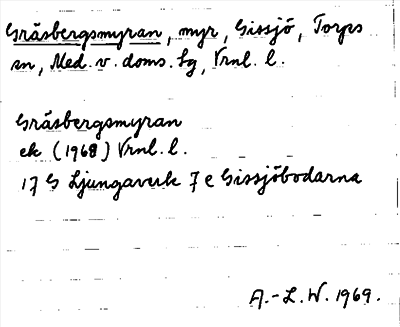 Gräsbergsmyran, myr, Gissjö, Torps
sn, Med. v. doms. lg, Vrnl. l.
Gräsbergsmyran
ek (1968) Vrnl. l.
17 G Ljungaverk 7 e Gissjöbodarna
A.-L. W. 1969.